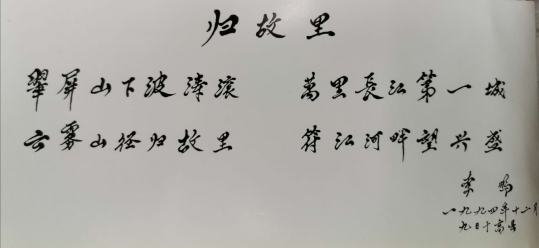 归故里
翠屏山下波涛滚 萬里長江第一城
云雾山径归故里 符江河畔望兴盛
李鹏
一九九四年十二月
九日于高县